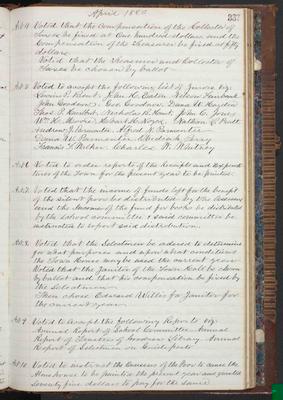 April 1880
337
Art 4. Voted that the Compensation of the Collector of
Taxes be fixed at One hundred dollars and the
Compensation of the Treasurer be fixed at fifty
dollars.
Voted that the Treasurer and Collector of
Taxes be chosen by ballot
Art 5. Voted to accept the following list of Jurors viz:
John Goodnow, Geo. Goodnow, Dana W.
Thos. P. Hurlbut, Nicholas H. Hunt, John C. Jones
Wm. H. Moore, Hubert H. Rogers, Nathan L. Pratt
Andrew J. Carpenter, Alfred N. Carpenter
Francis F. Walker, Charles W. Whitney
Voted to order reports of the Receipts and Expendi-
tures of the Town for the present year to be printed.
Voted that the income of funds left for the benefit
of the silent poor be distributed by the Assessors
and the Income of the fund for books be distributed
by the School committee & said committee be
instructed to report said distribution.
Voted that the Selectmen be advised to determine
for what purposes and upon what conditions
the Town House may be used the current year
Voted that the Janitor of the Town Hall be chosen
by ballot and that his compensation be fixed by
the Selectmen.
Then chose Edward Willis for Janitor for
the current year.
Art 9. Voted to accept the following Reports viz:
Annual Report of School Committee Annual
Report of Trustees of Goodnow Library Annual
Report of Selectmen on Guide posts
Art 10. Voted to instruct the Overseers of the Poor to cause the
Almshouse to be painted the present year and granted
Seventy five dollars to pay for the same